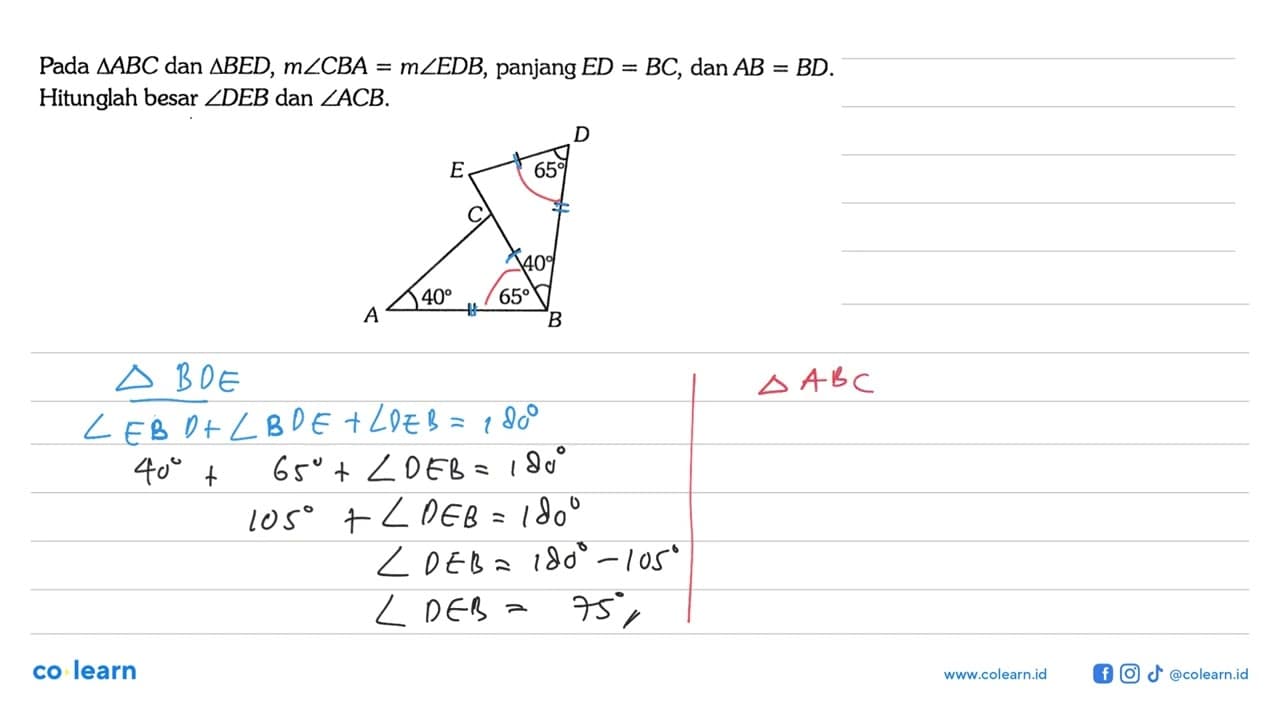 Pada △ABC dan △BED, m∠CBA = m∠EDB, panjang ED = BC, dan AB = BD.
Hitunglah besar ∠DEB dan ∠ACB.
D
E
65°
C
40°
40°
65°
A
B
△ BDE
∠EBD + ∠BDE + ∠DEB = 180°
40° + 65° + ∠DEB = 180°
105° + ∠DEB = 180°
∠DEB = 180° - 105°
∠DEB = 75°
△ ABC
co learn
www.colearn.id
@colearn.id